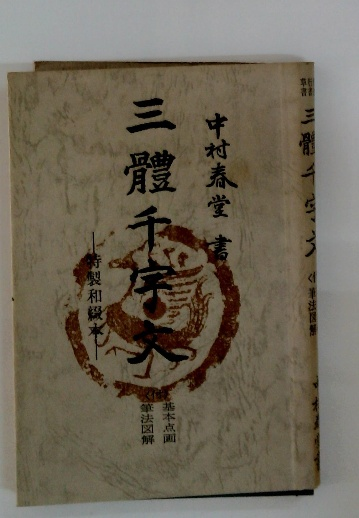 中村春堂 書
三體千字文
―特製和綴本―
基本点画
筆法図解
三體千字文
筆法図解